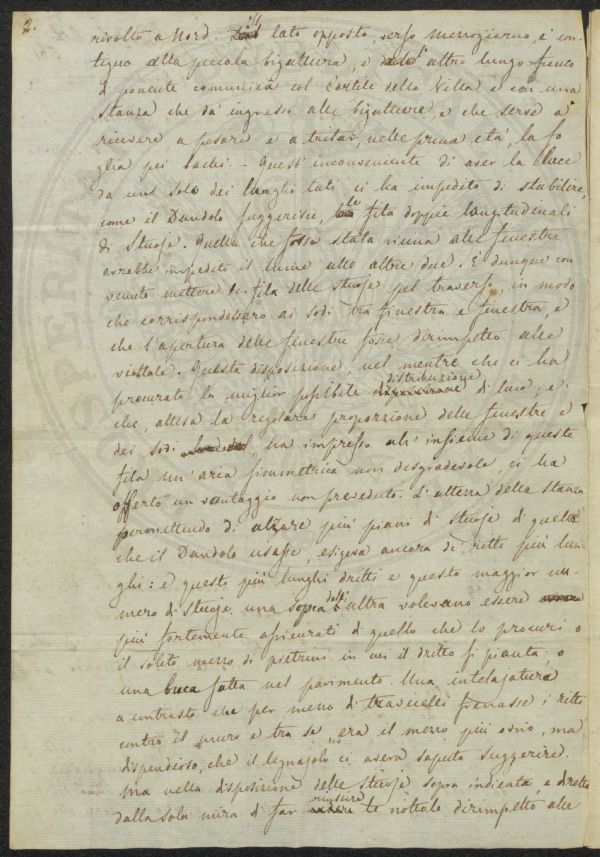 2.
rivolto a Nord. Il lato opposto, verso mezzogiorno, è con-
tiguo alla piccola bigattiera, e dall' altro lungo fianco
di ponente comunica col Cortile della Villa e con una
stanza che dà ingresso alle bigattiere, e che serve a
ricevere a pesare e a tritar, nelle prime età, la fo
glia pei bachi. - Quest' inconveniente di aver la luce
da uno solo dei lunghi lati ci ha impedito di stabilire,
come il Dandolo suggerisce, le fila doppie longitudinali
di Stuoje. Quella che fosse stata vicina alle finestre
avrebbe impedito il lume alle altre due. È dunque con
venuto mettere le fila delle stuoje pel traverso, in modo
che corrispondessero ai sodi tra finestra e finestra, e
che l'apertura delle finestre fosse dirimpetto alle
viottole. Questa disposizione, nel mentre che ci ha
procurato la miglior possibile distribuzione di luce, e
che, attesa la regolare proporzione delle finestre e
dei sodi, ha impresso all' insieme di queste
fila un' aria simmetrica non disgradevole, ci ha
offerto un vantaggio non preveduto. L'altezza della stanza
permettendo di alzare più piani di stuoje di quello
che il Dandolo usasse, esigeva ancora di ritti più lun
ghi: e questi più lunghi dritti e questo maggior nu-
mero di stuoje una sopra dell' altra volevano essere
più fortemente assicurati di quello che lo procuri o
il solito mezzo di pietrini in cui il dritto si pianta, o
una buca fatta nel pavimento. Una intelajatura
a contrasto che per mezzo di travicelli fermasse i ritti
contro il muro e tra se, era il mezzo più ovvio, ma
dispendioso, che il legnajolo ci aveva saputo suggerire.
Ma nella disposizione delle stuoje sopra indicata, e diretta
dalla sola mira di far riuscire le viottole dirimpetto alle